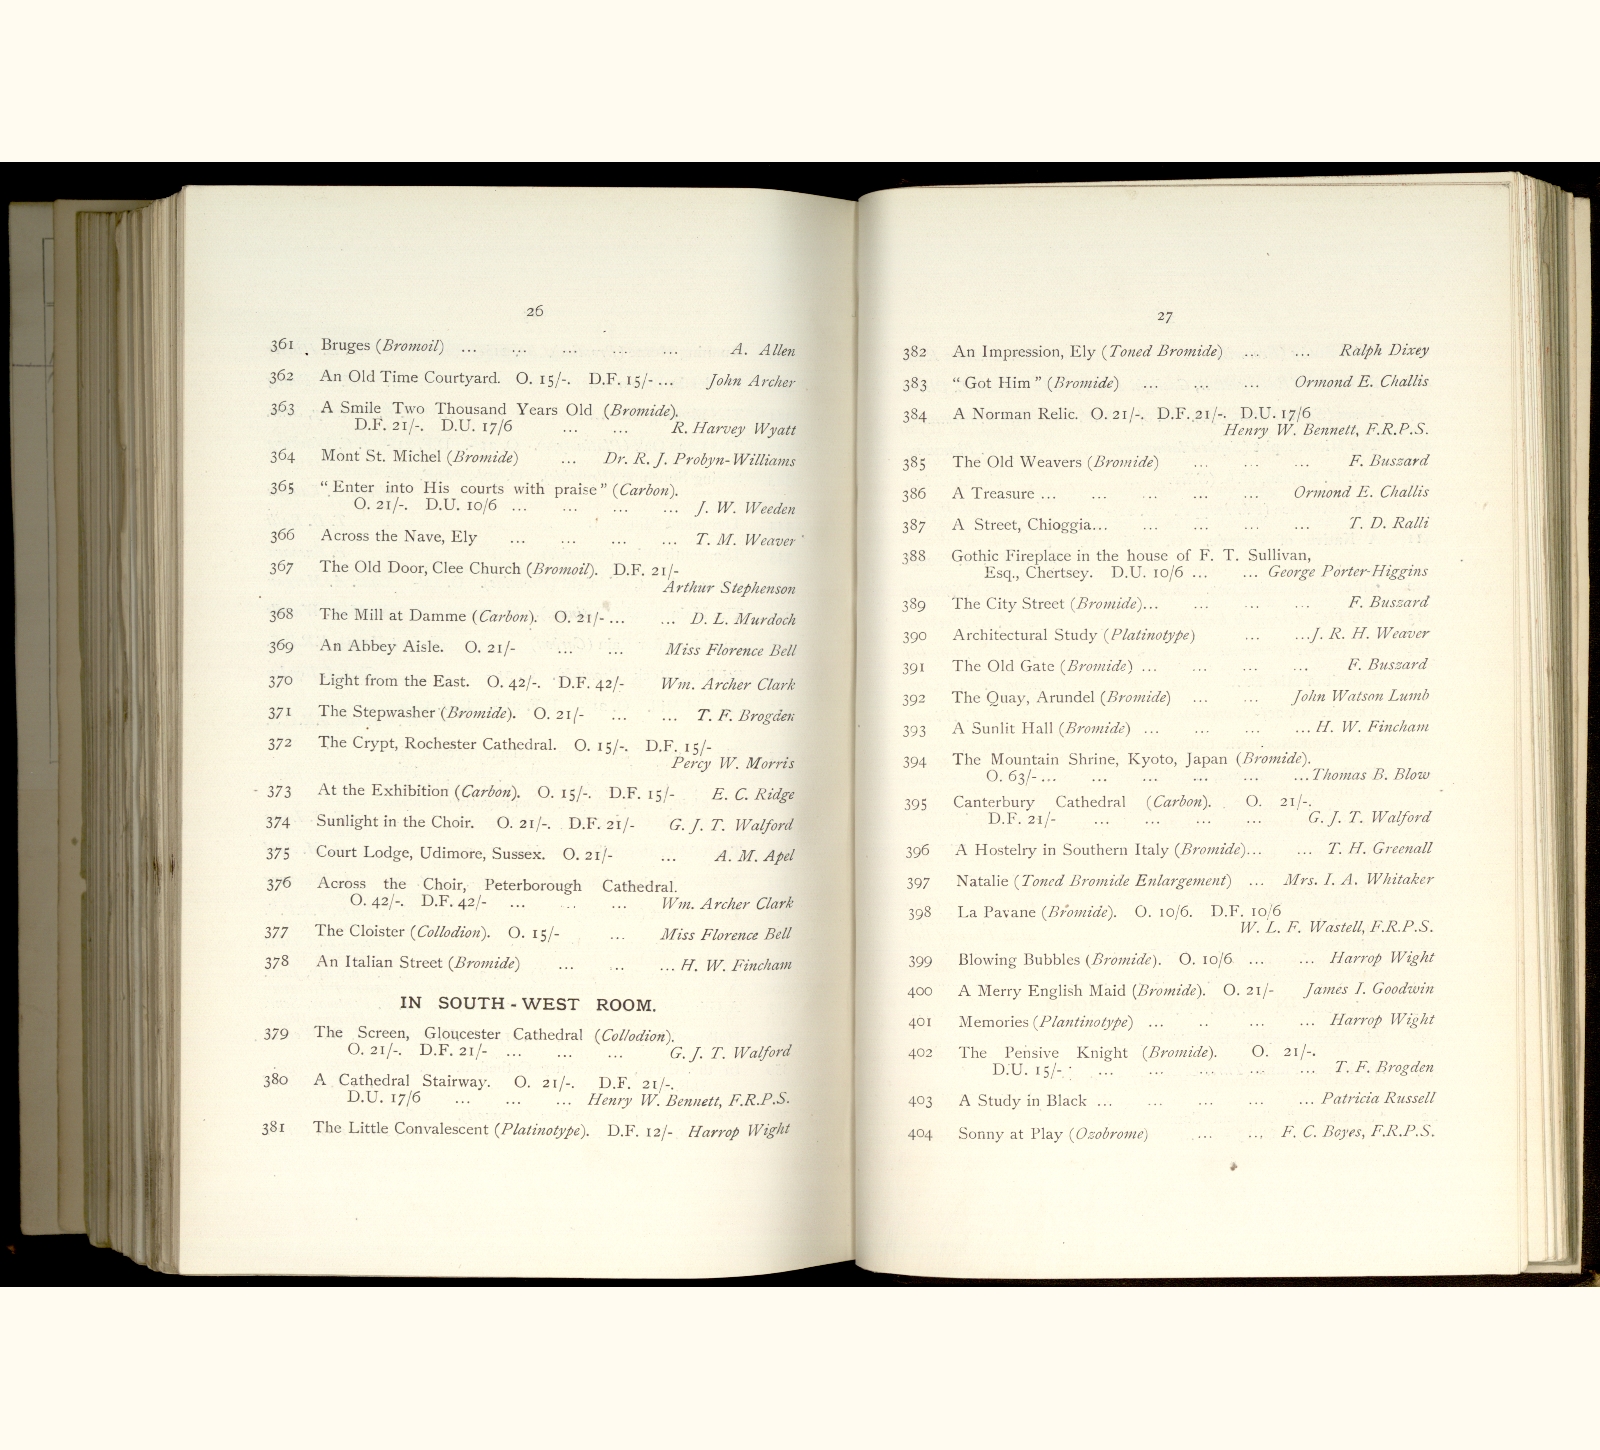 26
361 Bruges (Bromoil) ... ... ... ... ... A. Allen
362 An Old Time Courtyard. O. 15/-. D.F. 15/- ... John Archer
363 A Smile Two Thousand Years Old (Bromide).
D.F. 21/-. D.U. 17/6 ... ... R. Harvey Wyatt
364 Mont St. Michel (Bromide) ... Dr. R. J. Probyn-Williams
365 "Enter into His courts with praise" (Carbon).
O. 21/-. D.U. 10/6 ... ... ... ... J. W. Weeden
366 Across the Nave, Ely ... ... ... ... T. M. Weaver
367 The Old Door, Clee Church (Bromoil). D.F. 21/-
Arthur Stephenson
368 The Mill at Damme (Carbon). O. 21/- ... ... D. L. Murdoch
369 An Abbey Aisle. O. 21/- ... ... Miss Florence Bell
370 Light from the East. O. 42/-. D.F. 42/- Wm. Archer Clark
371 The Stepwasher (Bromide). O. 21/- ... ... T. F. Brogden
372 The Crypt, Rochester Cathedral. O. 15/-. D.F. 15/-
Percy W. Morris
373 At the Exhibition (Carbon). O. 15/-. D.F. 15/- E. C. Ridge
374 Sunlight in the Choir. O. 21/-. D.F. 21/- G. J. T. Walford
375 Court Lodge, Udimore, Sussex. O. 21/- ... A. M. Apel
376 Across the Choir, Peterborough Cathedral.
O. 42/-. D.F. 42/- ... .. ... Wm. Archer Clark
377 The Cloister (Collodion). O. 15/- ... Miss Florence Bell
378 An Italian Street (Bromide) ... ... ... H. W. Fincham
IN SOUTH-WEST ROOM.
379 The Screen, Gloucester Cathedral (Collodion).
O. 21/-. D.F. 21/- ... ... ... G. J. T. Walford
380 A Cathedral Stairway. O. 21/-. D.F. 21/-.
D.U. 17/6 ... ... ... Henry W. Bennett, F.R.P.S.
381 The Little Convalescent (Platinotype). D.F. 12/- Harrop Wight
27
382 An Impression, Ely (Toned Bromide) ... ... Ralph Dixey
383 "Got Him" (Bromide) ... ... ... Ormond E. Challis
384 A Norman Relic. O. 21/-. D.F. 21/-. D.U. 17/6
Henry W. Bennett, F.R.P.S.
385 The Old Weavers (Bromide) ... ... ... F. Buszard
386 A Treasure ... ... ... ... ... Ormond E. Challis
387 A Street, Chioggia... ... ... ... ... T. D. Ralli
388 Gothic Fireplace in the house of F. T. Sullivan,
Esq., Chertsey. D.U. 10/6 ... ... George Porter-Higgins
389 The City Street (Bromide)... ... ... ... F. Buszard
390 Architectural Study (Platinotype) ... ...J. R. H. Weaver
391 The Old Gate (Bromide) ... ... ... ... F. Buszard
392 The Quay, Arundel (Bromide) ... ... John Watson Lumb
393 A Sunlit Hall (Bromide) ... ... ... ... H. W. Fincham
394 The Mountain Shrine, Kyoto, Japan (Bromide).
O. 63/- ... ... ... ... ... ... Thomas B. Blow
395 Canterbury Cathedral (Carbon). O. 21/-.
D.F. 21/- ... ... ... ... G. J. T. Walford
396 A Hostelry in Southern Italy (Bromide)... ... T. H. Greenall
397 Natalie (Toned Bromide Enlargement) ... Mrs. I. A. Whitaker
398 La Pavane (Bromide). O. 10/6. D.F. 10/6
W. L. F. Wastell, F.R.P.S.
399 Blowing Bubbles (Bromide). O. 10/6 ... ... Harrop Wight
400 A Merry English Maid (Bromide). O. 21/- James I. Goodwin
401 Memories (Plantinotype) ... .. ... ... Harrop Wight
402 The Pensive Knight (Bromide). O. 21/-.
D.U. 15/-. ... ... ... ... ... T. F. Brogden
403 A Study in Black ... ... ... ... ... Patricia Russell
404 Sonny at Play (Ozobrome) ... ... F. C. Boyes, F.R.P.S.